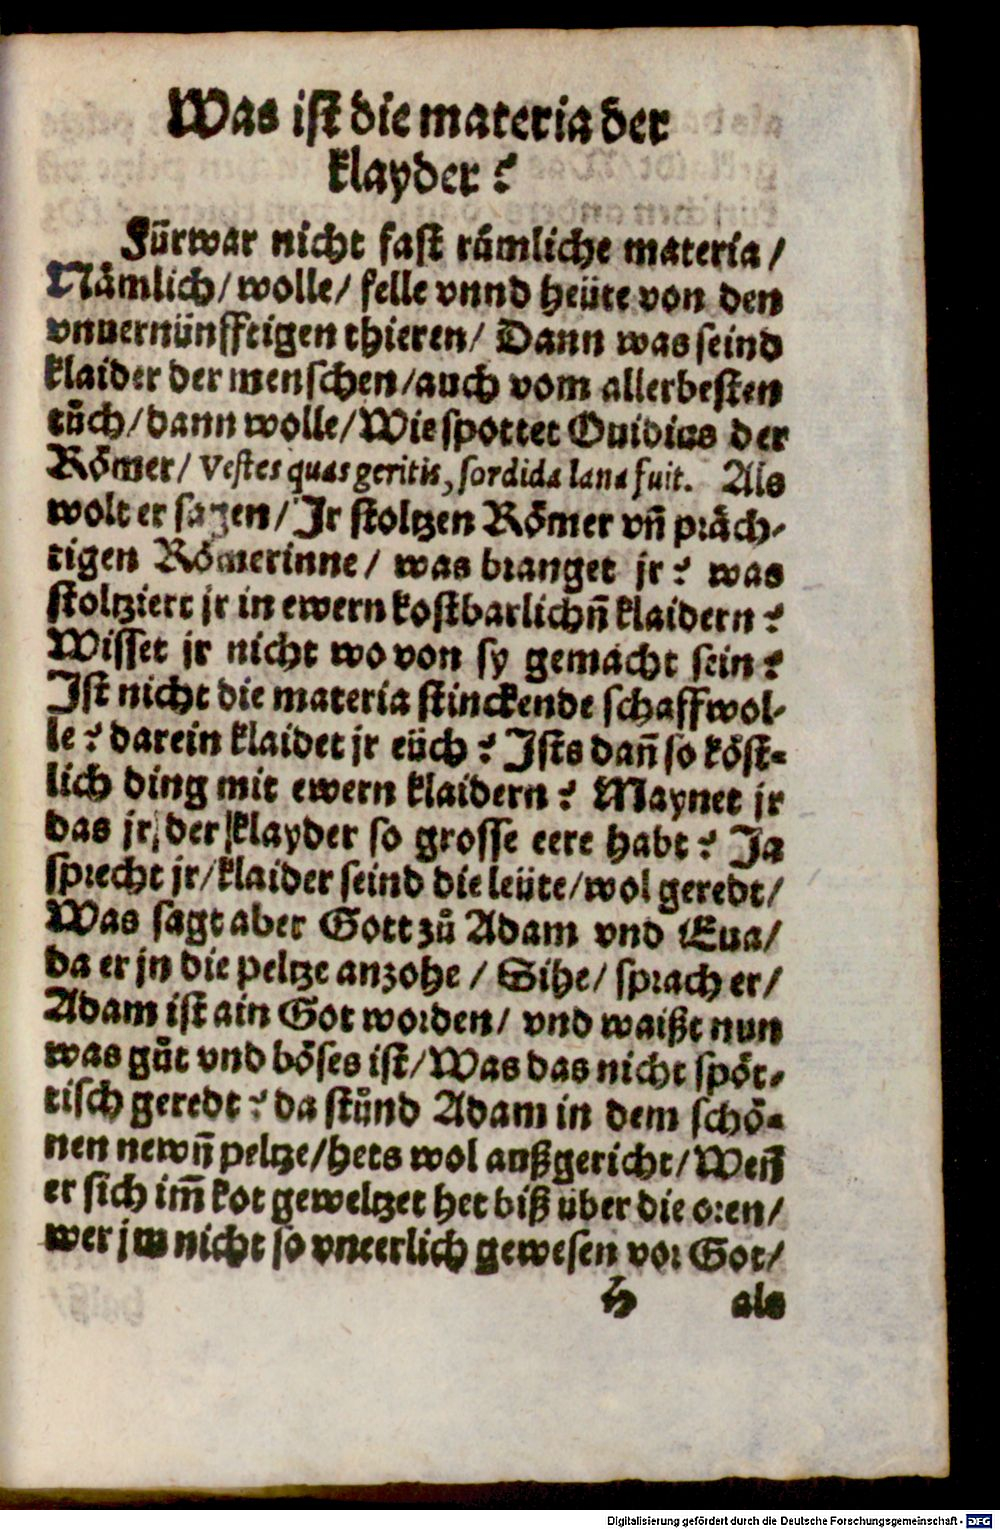 Was ist die materia der
klayder?
Fürwar nicht fast růmliche materia/
Nämlich/ wolle/ felle vnnd heüte von den
vnuernünfftigen thieren/ Dann was seind
klaider der menschen/auch vom allerbesten
tůch/dann wolle/Wie spottet Ouidius der
Römer/ Vestes quas geritis, sordida lana fuit. Als
wolt er sagen/ Jr stoltzen Römer vñ präch-
tigen Römerinne/ was branget jr? was
stoltziert jr in ewern kostbarlichñ klaidern?
Wisset jr nicht wo von sy gemacht sein?
Jst nicht die materia stinckende schaffwol-
le? darein klaidet jr eüch? Jsts dañ so köst-
lich ding mit ewern klaidern? Maynet jr
das jr der klayder so grosse eere habt? Ja
sprecht jr/klaider seind die leüte/wol geredt/
Was sagt aber Gott zů Adam vnd Eua/
da er jn die peltze anzohe / Sihe/ sprach er/
Adam ist ain Got worden/ vnd waißt nun
was gůt vnd böses ist/Was das nicht spöt-
tisch geredt? da stůnd Adam in dem schö-
nen newñ peltze/hets wol außgericht/Weñ
er sich im̃ kot geweltzet het biß über die oren/
wer jm nicht so vneerlich gewesen vor Got/
H als
Digitalisierung gefördert durch die Deutsche Forschungsgemeinschaft - DFG